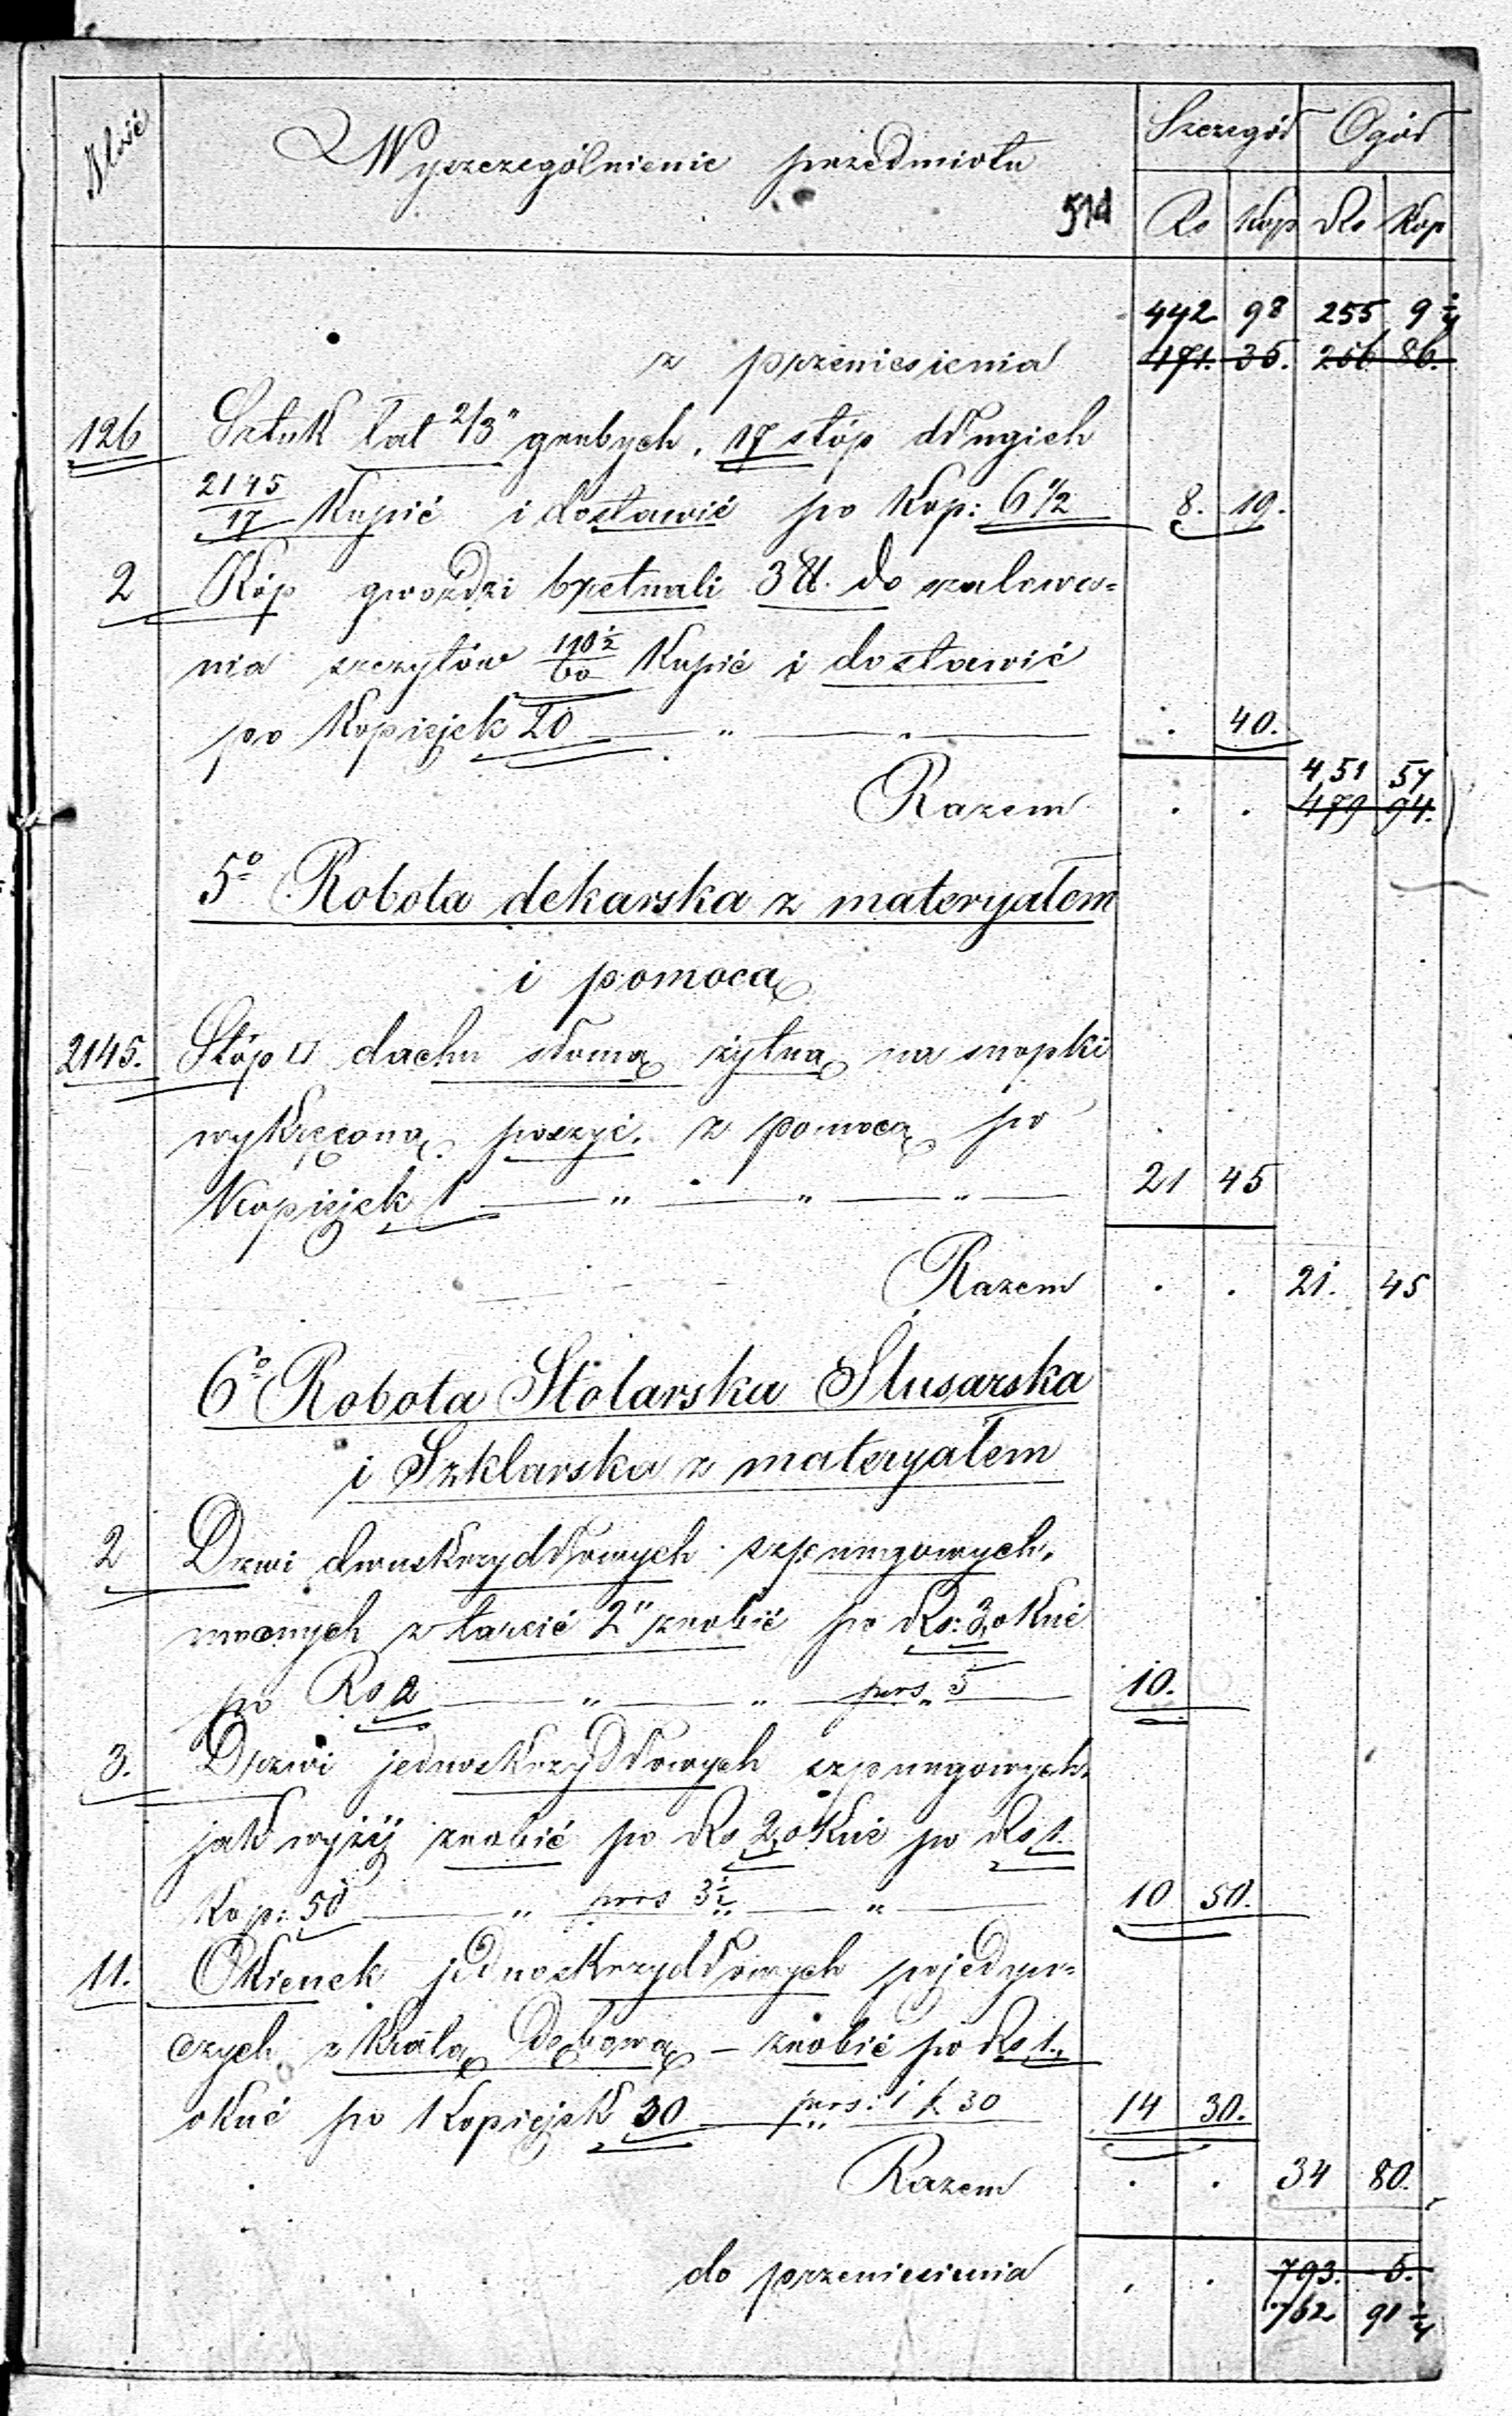 Ilość Wyszczególnienie przedmiotu Szczegół Ogół
514 Rs Kop Rs Kop
442 98 255 9 1/4
z przeniesienia 471. 35. 256 86.
126 Sztuk łat 2/3" grubych, 17 stóp długich
2145/17 Kupić i dostawić po Kop: 6 1/2 8. 19.
2 Kóp gwoździ bretnali 3 do szalowa=
nia szczytów 110 1/2/60 Kupić i dostawić
po Kopiejek 20 — " — " — . 40.
451 57
Razem . . 479 94.
5° Robota dekarska z materyałem
i pomocą
2145. Stóp □ dachu słomą żytną na snopki
wykręconą poszyć, z pomocą po
Kopiejek 1 — " — " — " — 21 45
Razem . . 21. 45
6° Robota Stolarska Slusarska
i Szklarska z materyałem
2 Drzwi dwuskrzydłowych szpungowych,
z tarcić 2" zrobić po Rs: 3, okuć
po Rs 2 — " — " — 5 10.
3. Drzwi jednoskrzydłowych szpungowych,
jak wyżéj zrobić po Rs 2, okuć po Rs 1.
Kop: 50 — " — 3 1/2 — " — 10 50.
11. Okienek jednoskrzydłowych pojedyn=
czych z Kratą Dębową – zrobić po Rs 1.,
okuć po Kopiejek 30 — 1 k 30 14 30.
Razem . . 34 80.
do przeniesienia . . 793. 6.
762 91 1/4